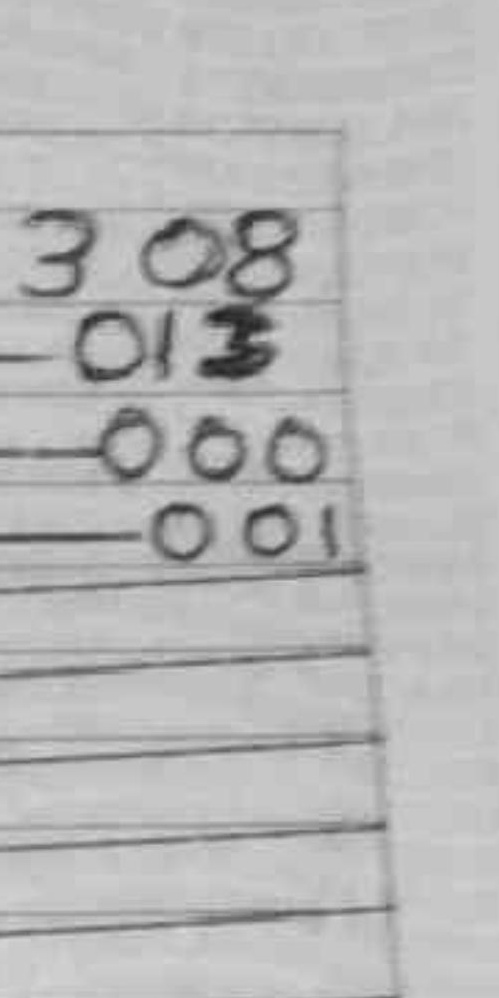 308
013
000
001